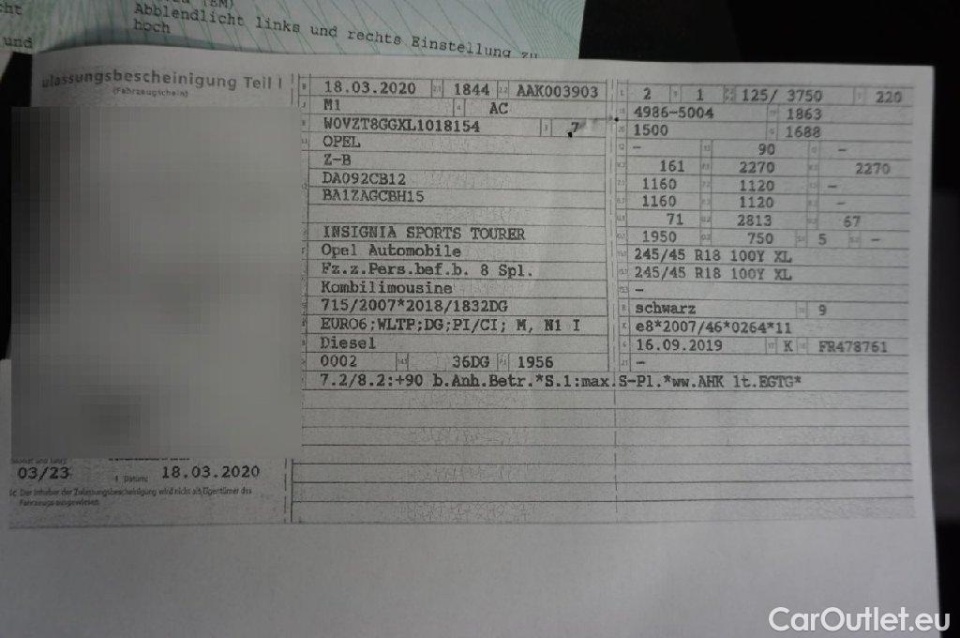 cht
Abblendlicht links und rechts Einstellung zu
und
hoch
ulassungsbescheinigung Teil I
(Fahrzeugschein)
18.03.2020 1844 AAK003903
M1 AC
W0VZT8GGXL1018154 7
OPEL
Z-B
DA092CB12
BA1ZAGCBH15
INSIGNIA SPORTS TOURER
Opel Automobile
Fz.z.Pers.bef.b. 8 Spl.
Kombilimousine
715/2007*2018/1832DG
EURO6;WLTP;DG;PI/CI; M, N1 I
Diesel
0002 36DG 1956
7.2/8.2:+90 b.Anh.Betr.*S.1:max.S-Pl.*ww.AHK lt.EGTG*
2 1 125/ 3750 220
4986-5004 1863
1500 1688
- 90 -
161 2270 2270
1160 1120 -
1160 1120 -
71 2813 67
1950 750 5 -
245/45 R18 100Y XL
245/45 R18 100Y XL
-
schwarz 9
e8*2007/46*0264*11
16.09.2019 K FR478761
-
03/23 Datum: 18.03.2020
Der Inhaber der Zulassungsbescheinigung wird nicht als Eigentümer des
Fahrzeugs ausgewiesen.
CarOutlet.eu